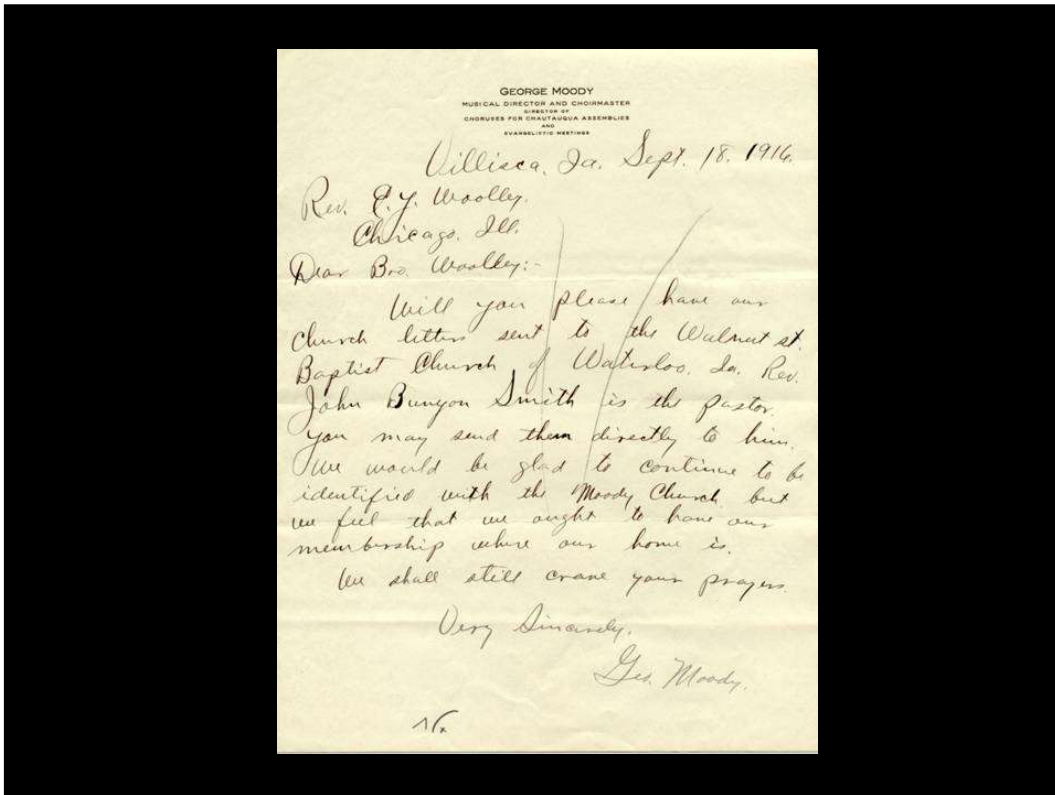 GEORGE MOODY
MUSICAL DIRECTOR AND CHOIRMASTER
DIRECTOR OF
CHORUSES FOR CHAUTAUQUA ASSEMBLIES
AND
EVANGELISTIC MEETINGS
Villisca, Ia. Sept. 18. 1916.
Rev. E. Y. Woolley.
Chicago. Ill.
Dear Bro. Woolley:-
Will you please have our
church letters sent to the Walnut st.
Baptist Church of Waterloo. Ia. Rev.
John Bunyon Smith is the pastor.
you may send them directly to him.
We would be glad to continue to be
identified with the Moody Church but
we feel that we ought to have our
membership where our home is.
We shall still crave your prayers.
Very Sincerely,
Geo. Moody.